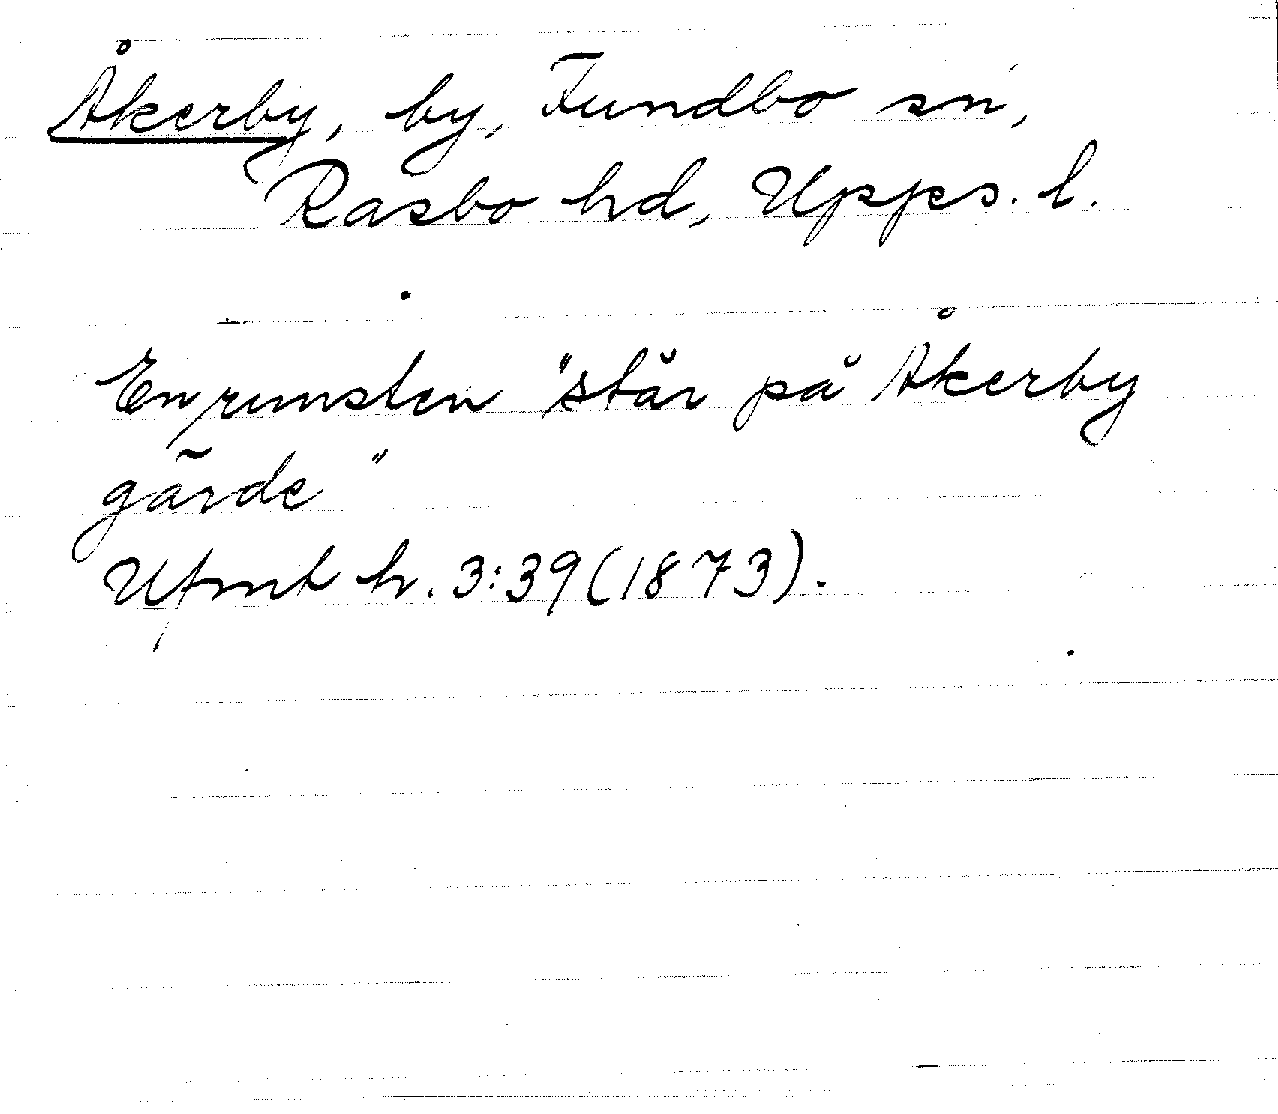 Åkerby, by, Funbo sn,
Rasbo hd, Upps. l.
En runsten "står på Åkerby
gärde"
Ufmt h. 3:39 (1873).